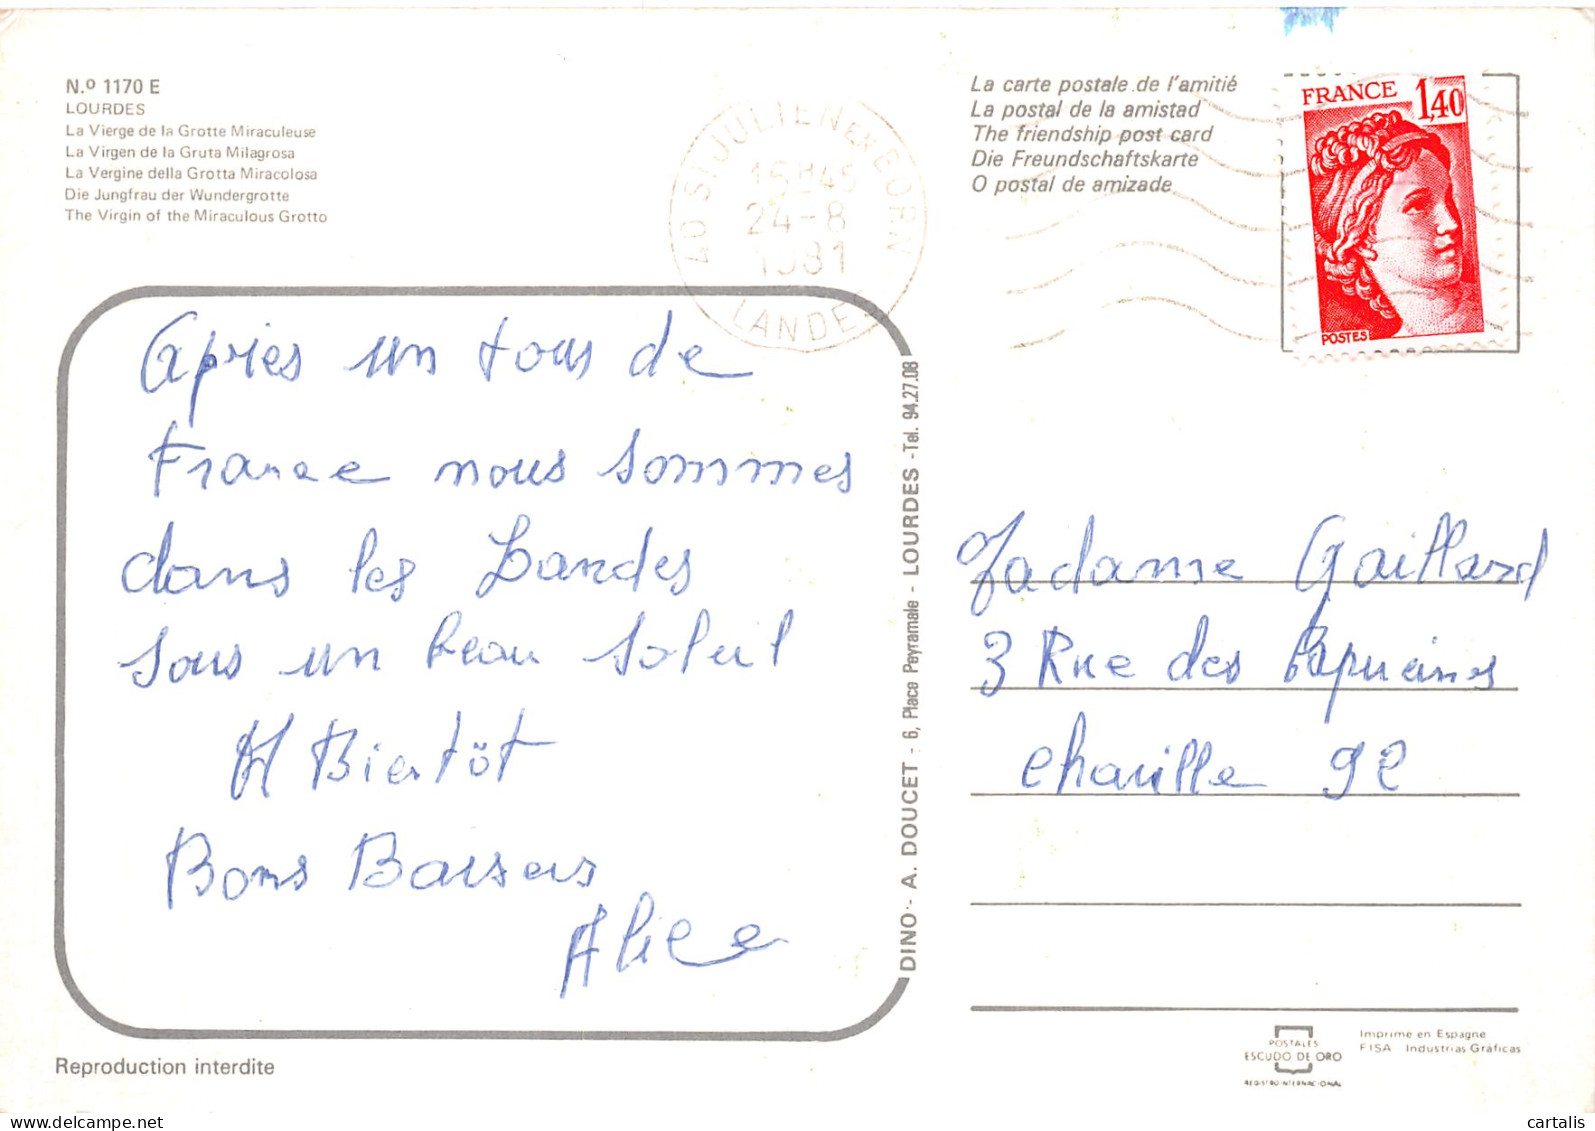 N.º 1170 E
LOURDES
La Vierge de la Grotte Miraculeuse
La Virgen de la Gruta Milagrosa
La Vergine della Grotta Miracolosa
Die Jungfrau der Wundergrotte
The Virgin of the Miraculous Grotto
40 ST JULIEN EN BORN
24-8
1981
LANDES
La carte postale de l'amitié
La postal de la amistad
The friendship post card
Die Freundschaftskarte
O postal de amizade
FRANCE 1,40
POSTES
Après un tour de
France nous sommes
dans les Landes
sous un beau soleil
A Bientôt
Bons Baisers
Alice
DINO - A. DOUCET - 6, Place Peyramale - LOURDES - Tel. 94.27.08
Madame Gaillard
3 Rue des Capucines
Chaville 92
Reproduction interdite
POSTALES
ESCUDO DE ORO
REGISTRO INTERNACIONAL
Imprime en Espagne
FISA Industrias Gráficas
cartalis
www.delcampe.net